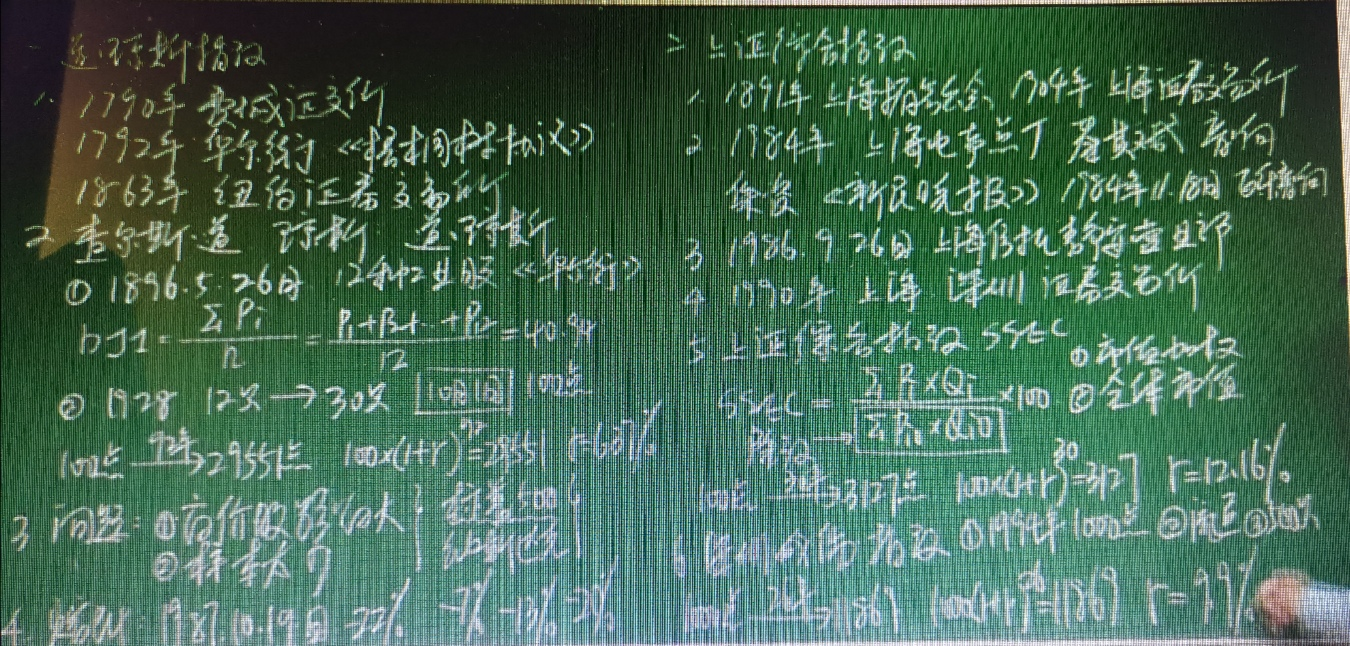 道·琼斯指数
1. 1790年 费城证交所
1792年 华尔街《梧桐树协议》
1863年 纽约证券交易所
2 查尔斯·道 琼斯 道·琼斯
① 1896.5.26日 12种工业股《华尔街》
DJI = ΣPi/n = P1+P2+..+P12/12 = 40.94
② 1928 12只→30只 10月1日 100点
100点 →29551点 100×(1+r)^92=29551 r=6.37%
3 问题：①高价股影响大 标普500
②样本太少 纽约
4. 熔断：1987.10.19日 -22% -7% -13% -20%
二 上证综合指数
1. 1891年 上海掮客总会 1904年 上海证券交易所
2. 1984年 上海电声总厂 音响
《新民晚报》 1984年11.18日 飞乐音响
3 1986.9.26日 上海信托静安营业部
4 1990年 上海 深圳 证券交易所
5 上证综合指数 SSEC ①市值加权
SSEC = ΣPi×Qi/ΣPi0×Qi0 ×100 ②全体市值
除数→
100点 30年→3127点 100×(1+r)^30=3127 r=12.16%
6 深圳成份指数 ①1994年1000点 ②流通 ③500只
→11869 1000(1+r)^26=11869 r=9.9%